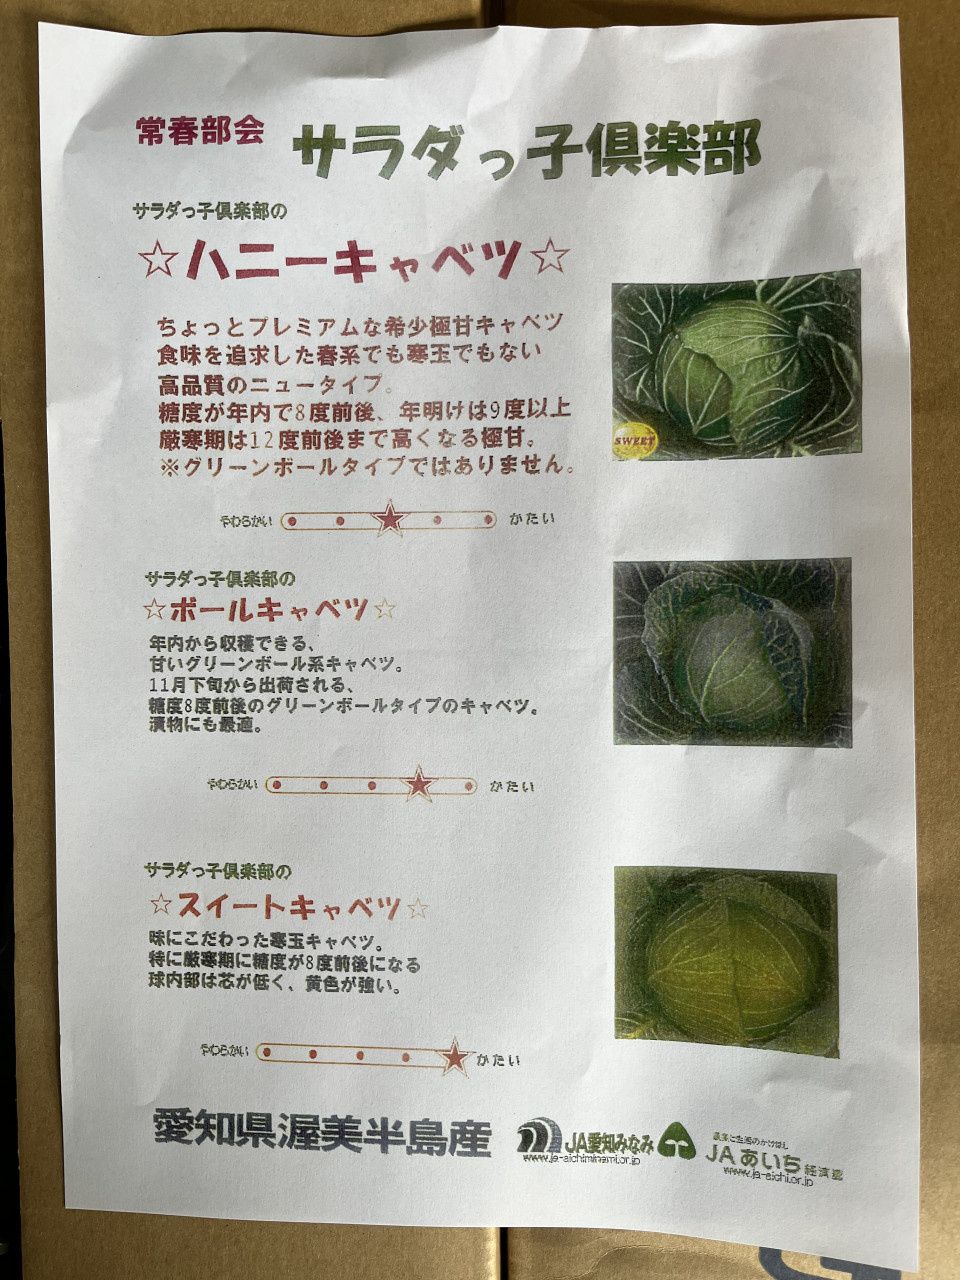 常春部会 サラダっ子倶楽部
サラダっ子倶楽部の
☆ハニーキャベツ☆
ちょっとプレミアムな希少極甘キャベツ
食味を追求した春系でも寒玉でもない
高品質のニュータイプ。
糖度が年内で8度前後、年明けは9度以上
厳寒期は12度前後まで高くなる極甘。
※グリーンボールタイプではありません。
SWEET
やわらかい かたい
サラダっ子倶楽部の
☆ボールキャベツ☆
年内から収穫できる、
甘いグリーンボール系キャベツ。
11月下旬から出荷される、
糖度8度前後のグリーンボールタイプのキャベツ。
漬物にも最適。
やわらかい かたい
サラダっ子倶楽部の
☆スイートキャベツ☆
味にこだわった寒玉キャベツ。
特に厳寒期に糖度が8度前後になる
球内部は芯が低く、黄色が強い。
やわらかい かたい
愛知県渥美半島産
JA愛知みなみ
www.ja-aichiminami.or.jp
農業と生活のかけはし
JAあいち経済連
www.ja-aichi.or.jp